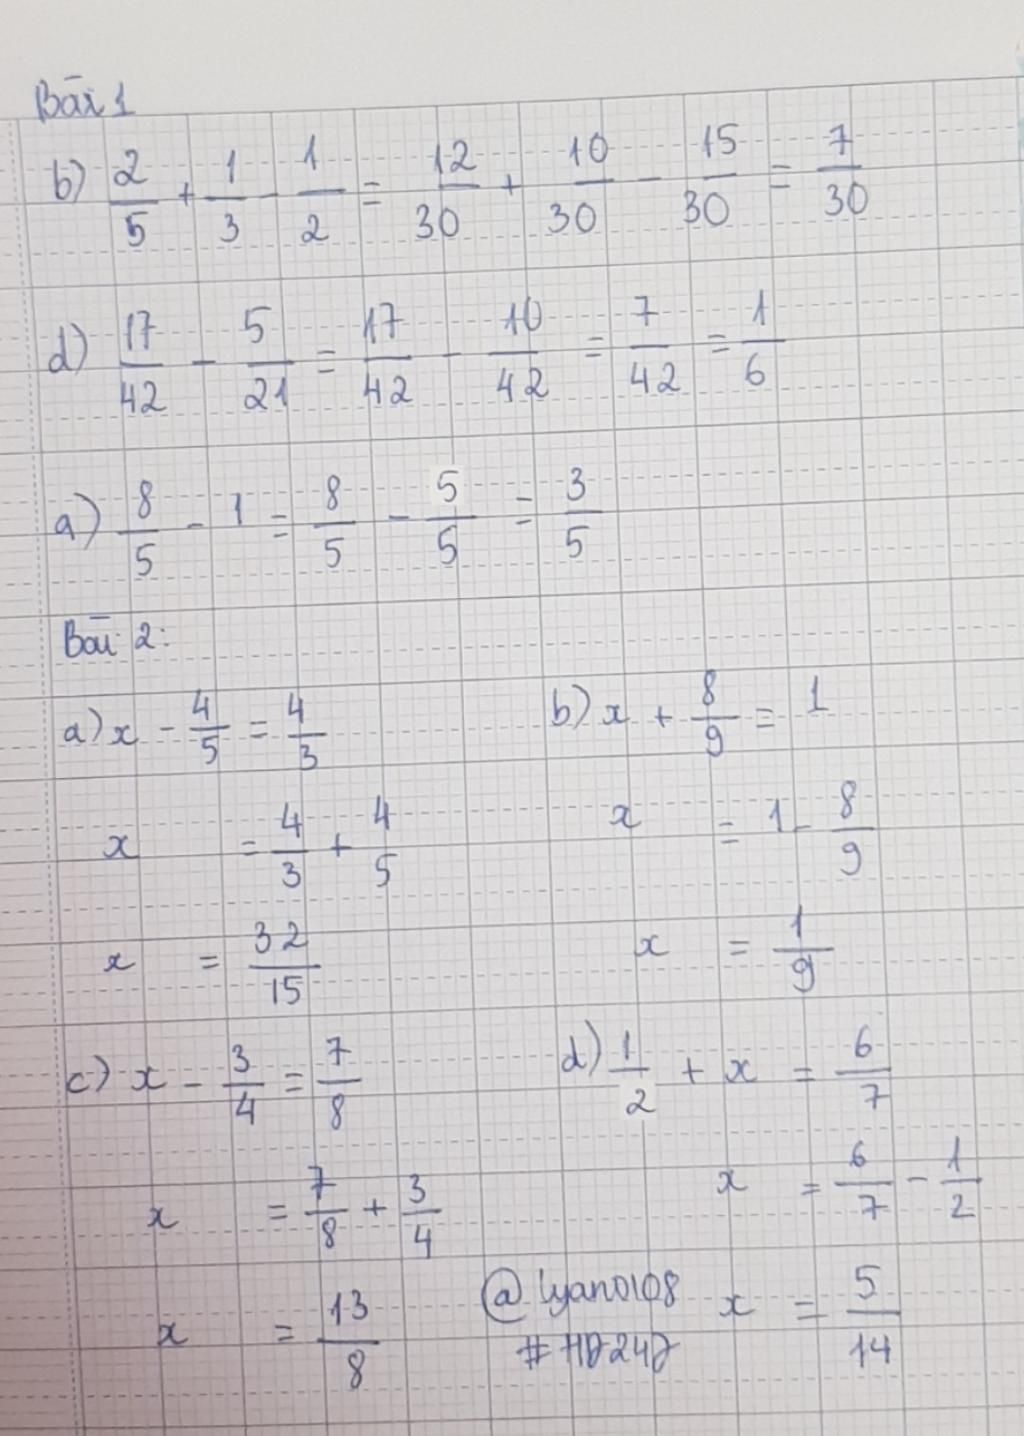 Bài 1
b) 2/5 + 1/3 - 1/2 = 12/30 + 10/30 - 15/30 = 7/30
d) 17/42 - 5/21 = 17/42 - 10/42 = 7/42 = 1/6
a) 8/5 - 1 = 8/5 - 5/5 = 3/5
Bài 2:
a) x - 4/5 = 4/3
x = 4/3 + 4/5
x = 32/15
b) x + 8/9 = 1
x = 1 - 8/9
x = 1/9
c) x - 3/4 = 7/8
x = 7/8 + 3/4
x = 13/8
d) 1/2 + x = 6/7
x = 6/7 - 1/2
x = 5/14
@lyano108